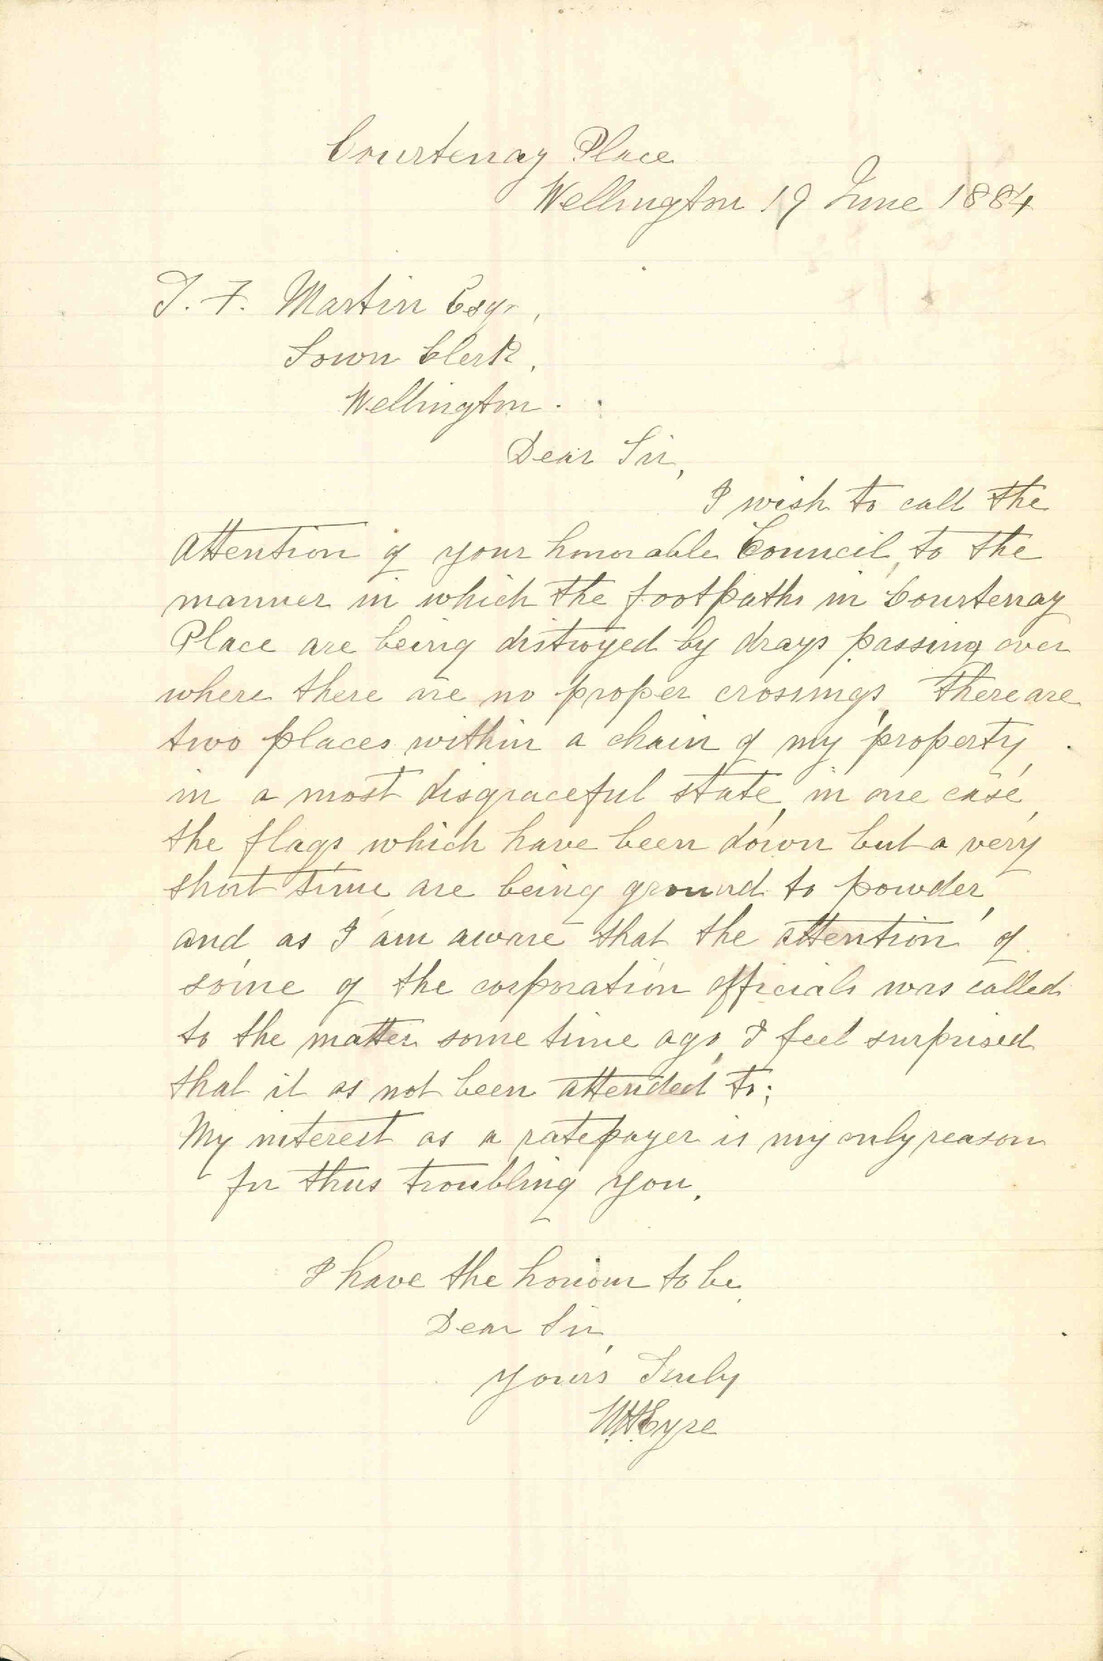 Courtenay Place
Wellington 19 June 1884
J. F. Martin Esqr,
Town Clerk,
Wellington.
Dear Sir,
I wish to call the
attention of your honorable Council, to the
manner in which the footpaths in Courtenay
Place are being distroyed by drays passing over
where there are no proper crossings, there are
two places within a chain of my property,
in a most disgraceful state, in one case,
the flags which have been down but a very
short time are being ground to powder,
and as I am aware that the attention of
some of the corporation officials was called
to the matter some time ago, I feel surprised
that it as not been attended to;
My interest as a ratepayer is my only reason
for thus troubling you.
I have the honour to be,
Dear Sir,
yours Truly
W.H.Eyre